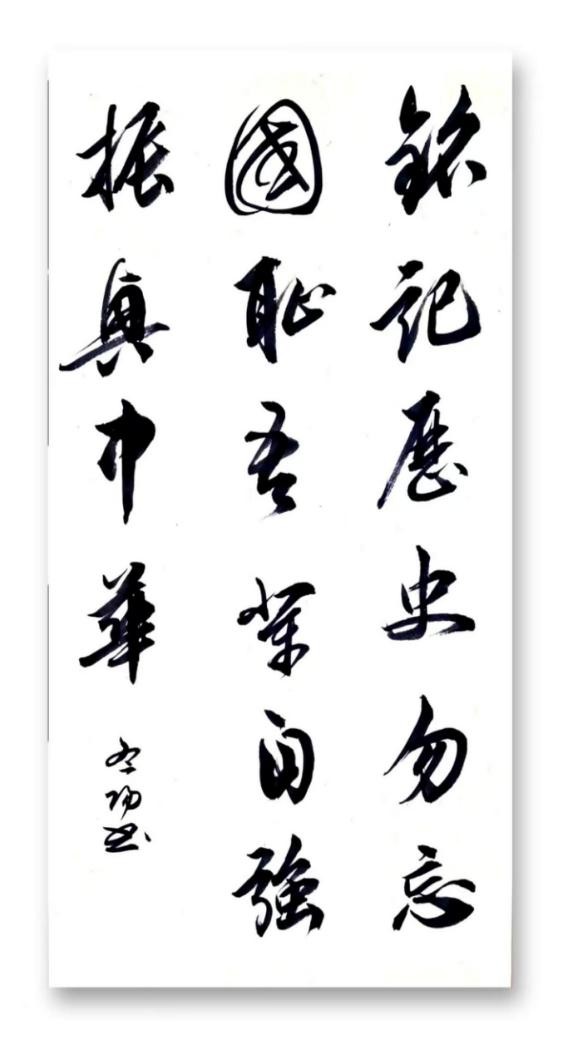 銘記歷史勿忘
國恥吾輩自強
振興中華